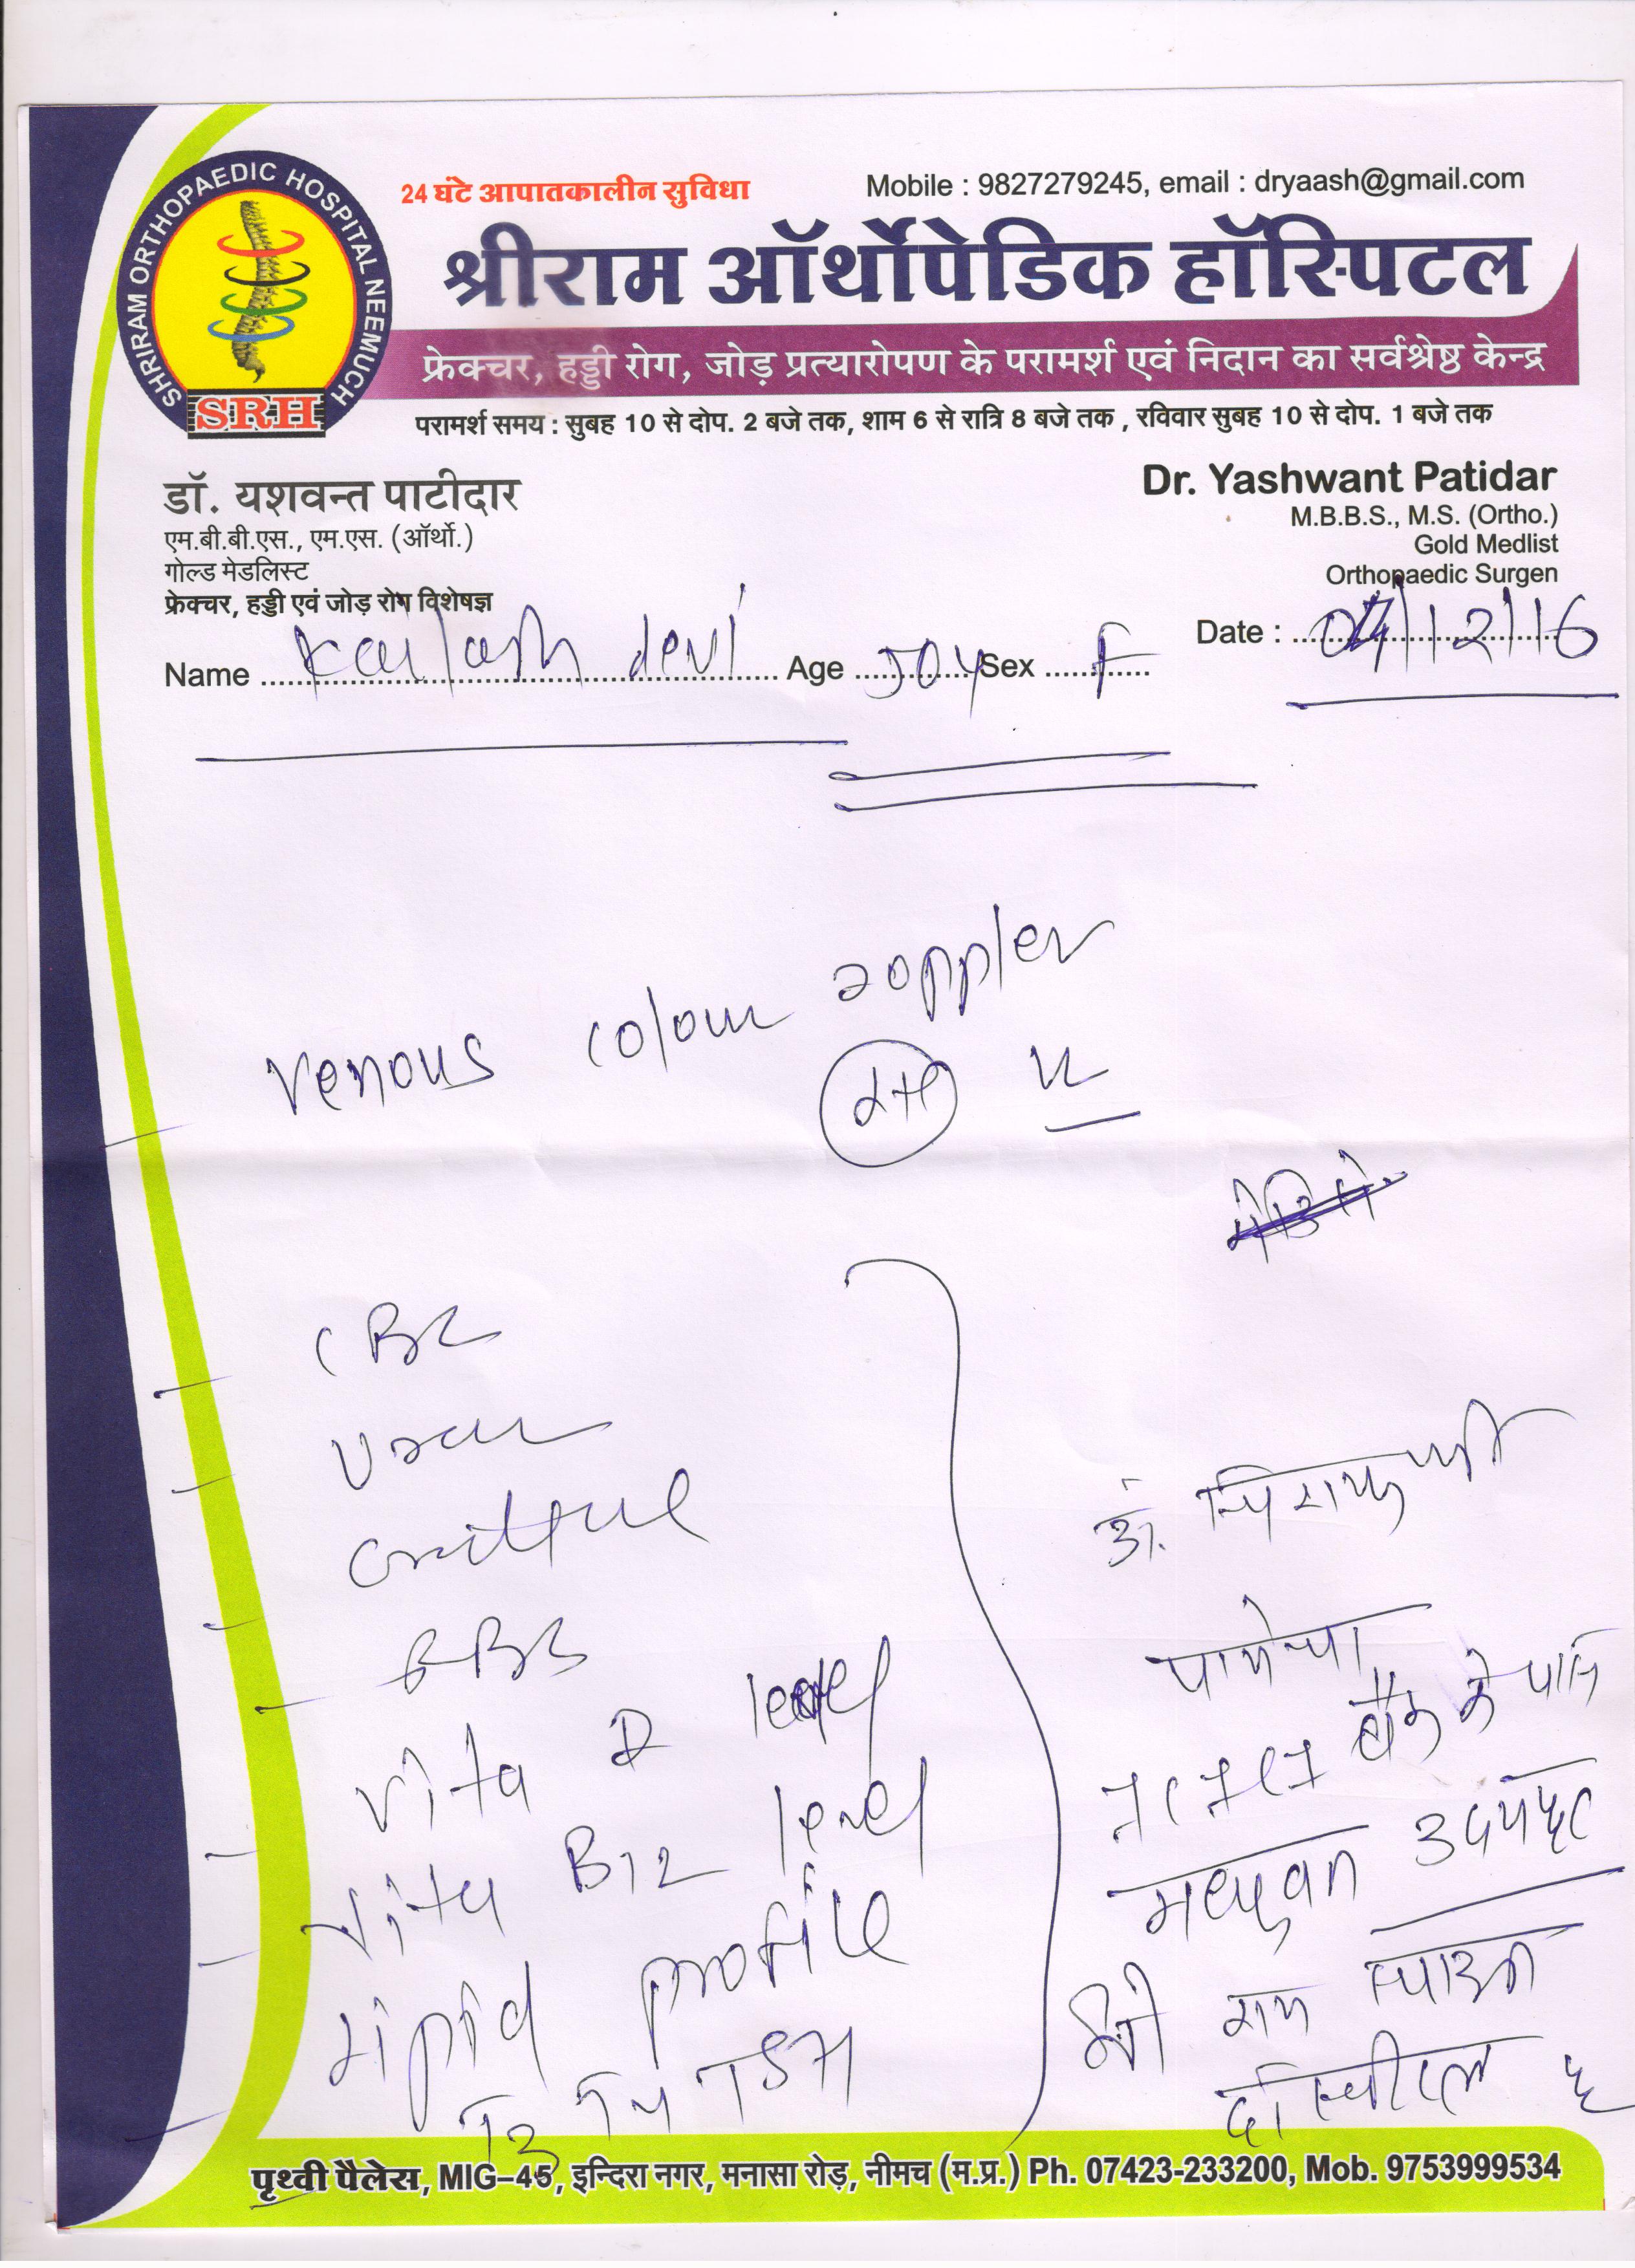 SHRIRAM ORTHOPAEDIC HOSPITAL NEEMUCH
SRH
24 घंटे आपातकालीन सुविधा
Mobile : 9827279245, email : dryaash@gmail.com
श्रीराम ऑर्थोपेडिक हॉस्पिटल
फ्रेक्चर, हड्डी रोग, जोड़ प्रत्यारोपण के परामर्श एवं निदान का सर्वश्रेष्ठ केन्द्र
परामर्श समय : सुबह 10 से दोप. 2 बजे तक, शाम 6 से रात्रि 8 बजे तक , रविवार सुबह 10 से दोप. 1 बजे तक
डॉ. यशवन्त पाटीदार
एम.बी.बी.एस., एम.एस. (ऑर्थो.)
गोल्ड मेडलिस्ट
फ्रेक्चर, हड्डी एवं जोड़ रोग विशेषज्ञ
Dr. Yashwant Patidar
M.B.B.S., M.S. (Ortho.)
Gold Medlist
Orthopaedic Surgen
Date : 04/12/16
Name Kailash devi Age 50y Sex F
venous colour doppler
CBC
Vita D level
Vita B12 level
Lipid profile
T3 T4 TSH
डॉ.
बैंक के पास
मधुवन
श्री राम
पृथ्वी पैलेस, MIG–45, इन्दिरा नगर, मनासा रोड़, नीमच (म.प्र.) Ph. 07423-233200, Mob. 9753999534